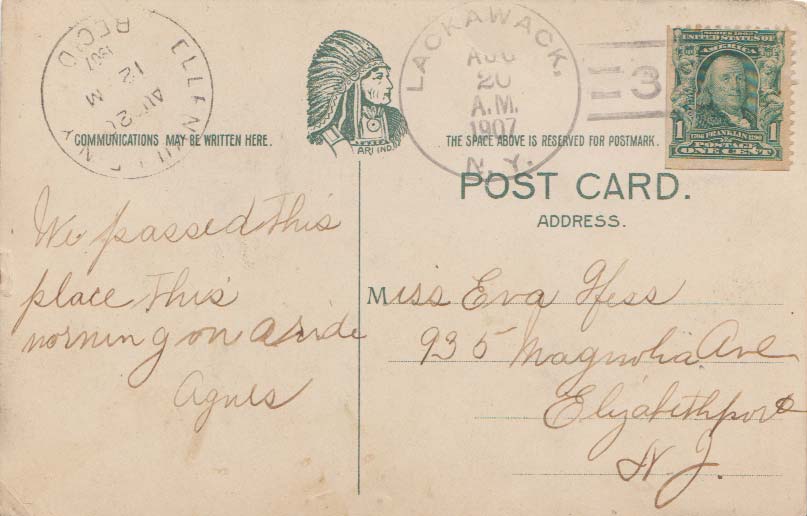 REC'D
1907
12 M
LACKAWACK.
AUG
20
A.M.
1907
N.Y.
3
SERIES 1902
UNITED STATES OF AMERICA
1 FRANKLIN 1
POSTAGE
ONE CENT
COMMUNICATIONS MAY BE WRITTEN HERE.
THE SPACE ABOVE IS RESERVED FOR POSTMARK.
POST CARD.
ADDRESS.
We passed this
place this
morning on a ride
Agnes
Miss Eva Hess
935 Magnolia Ave
Elizabethport
N J.